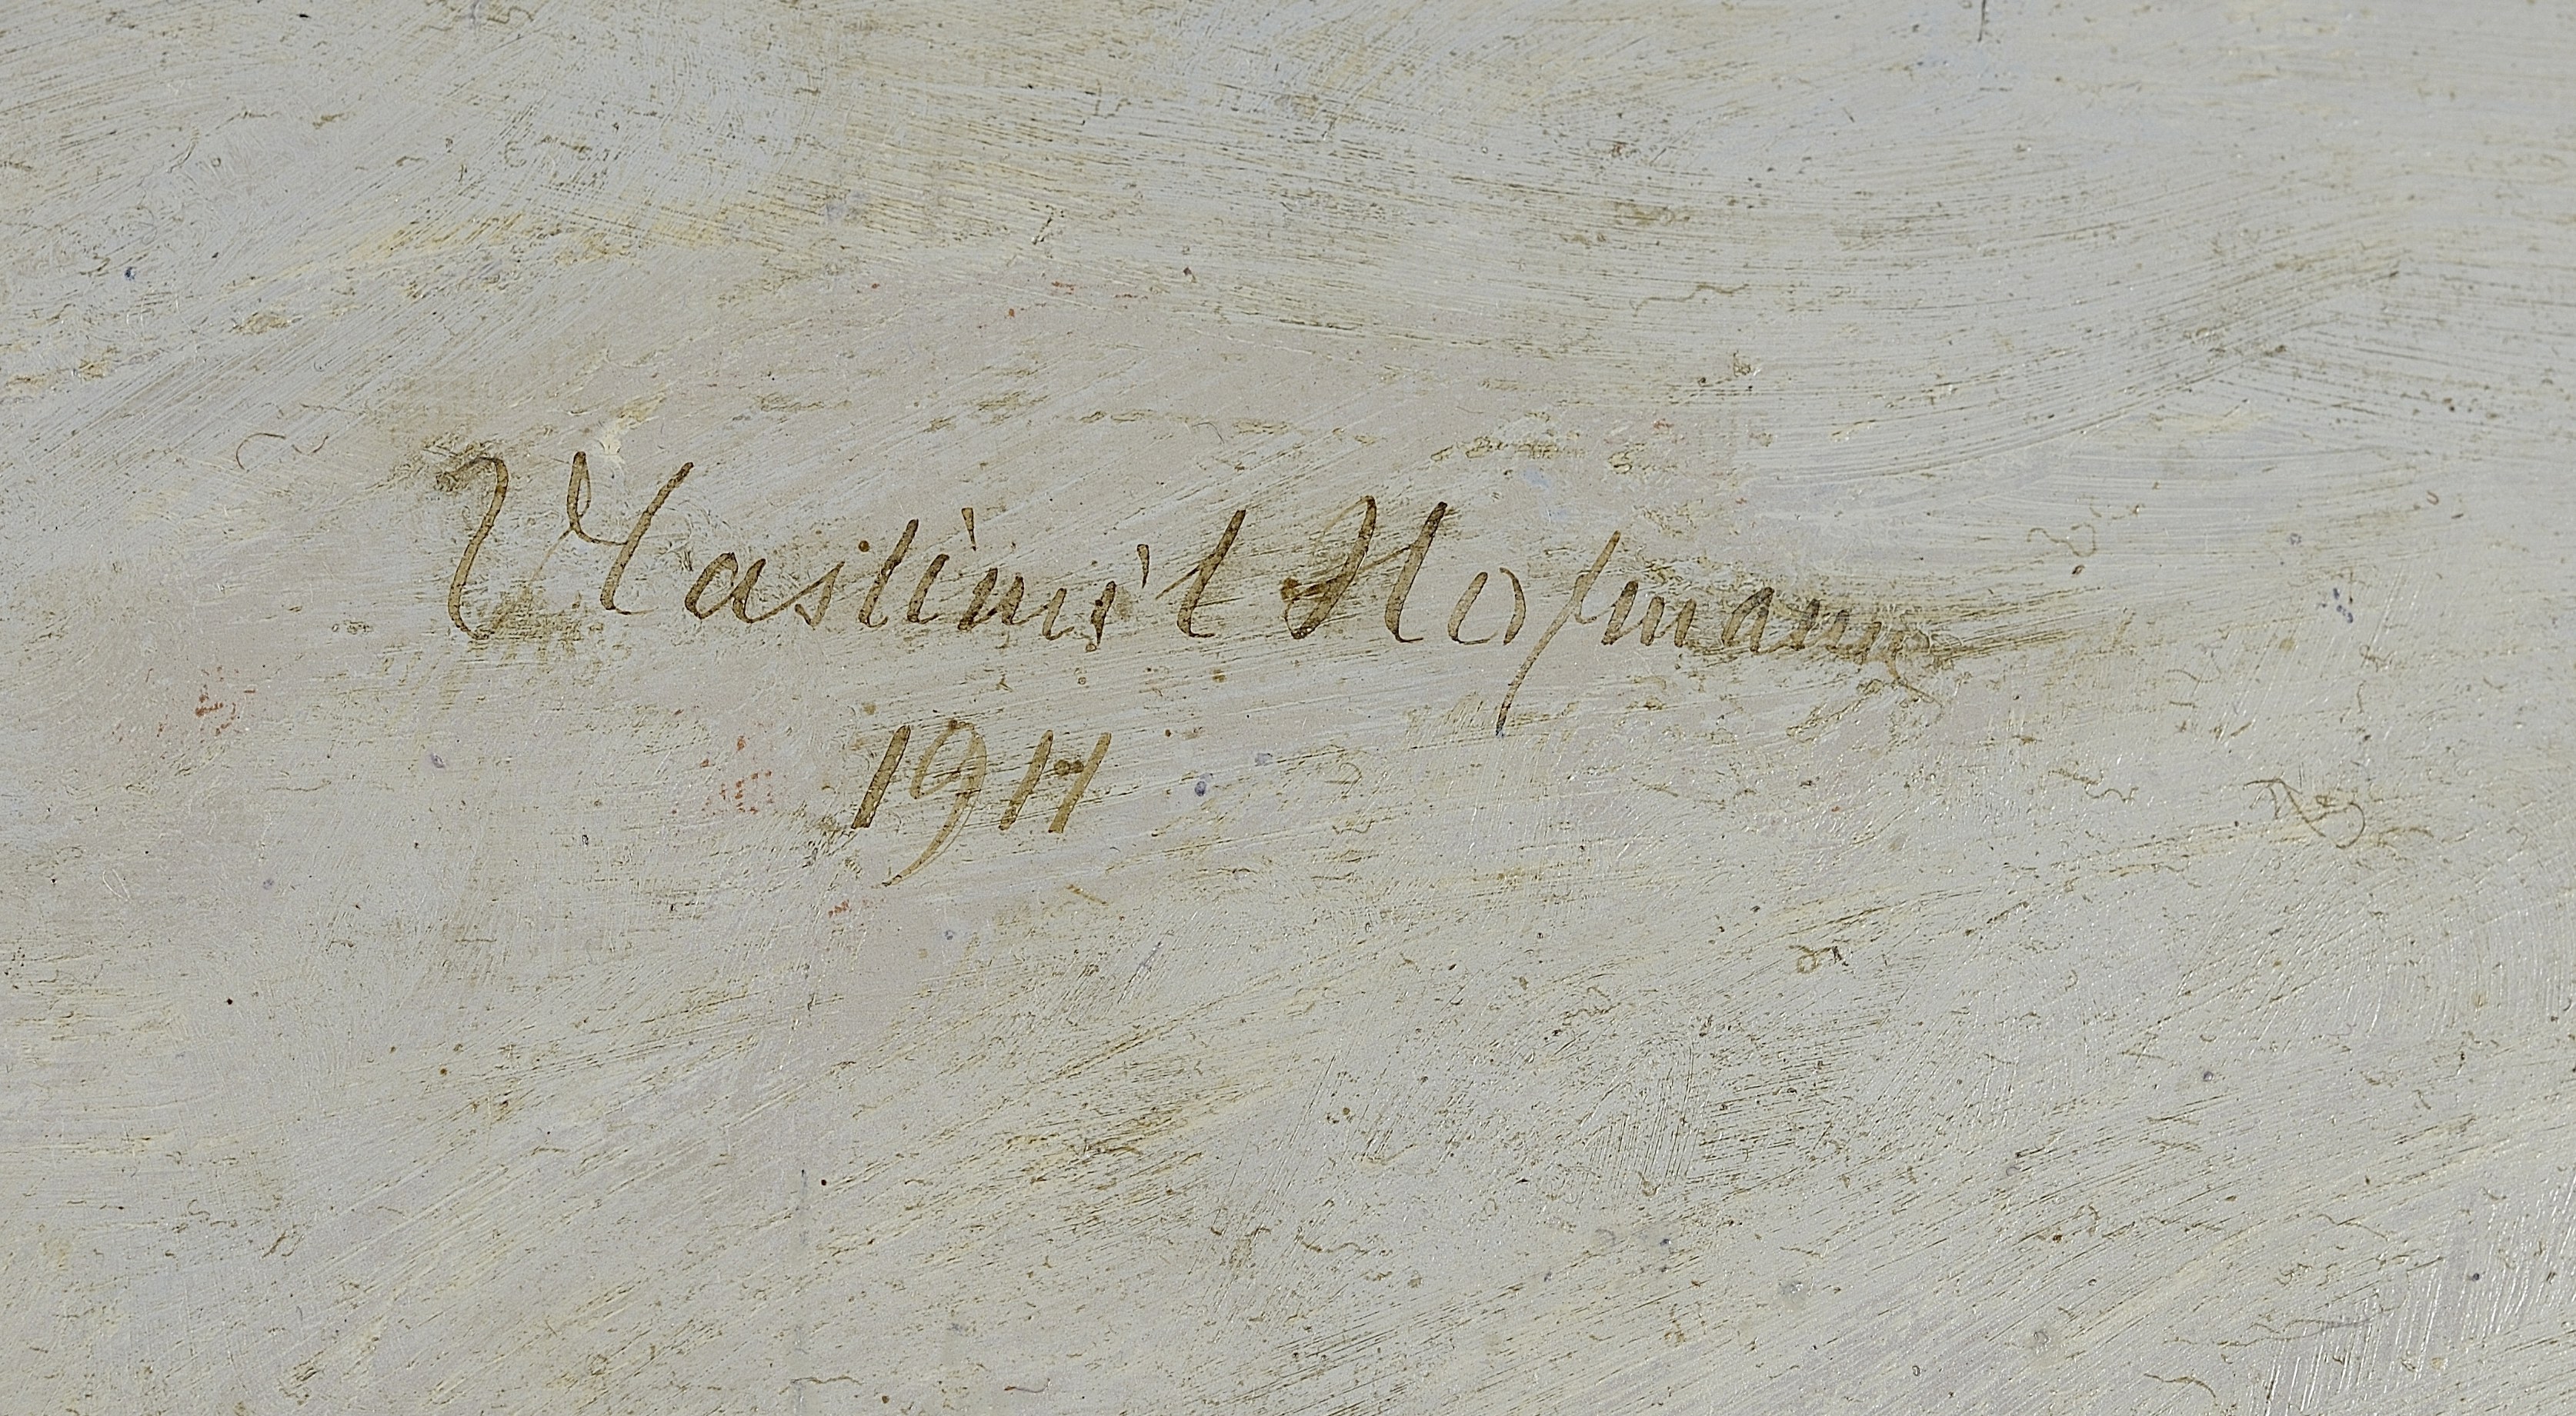 Vlastimil Hofmann
1911